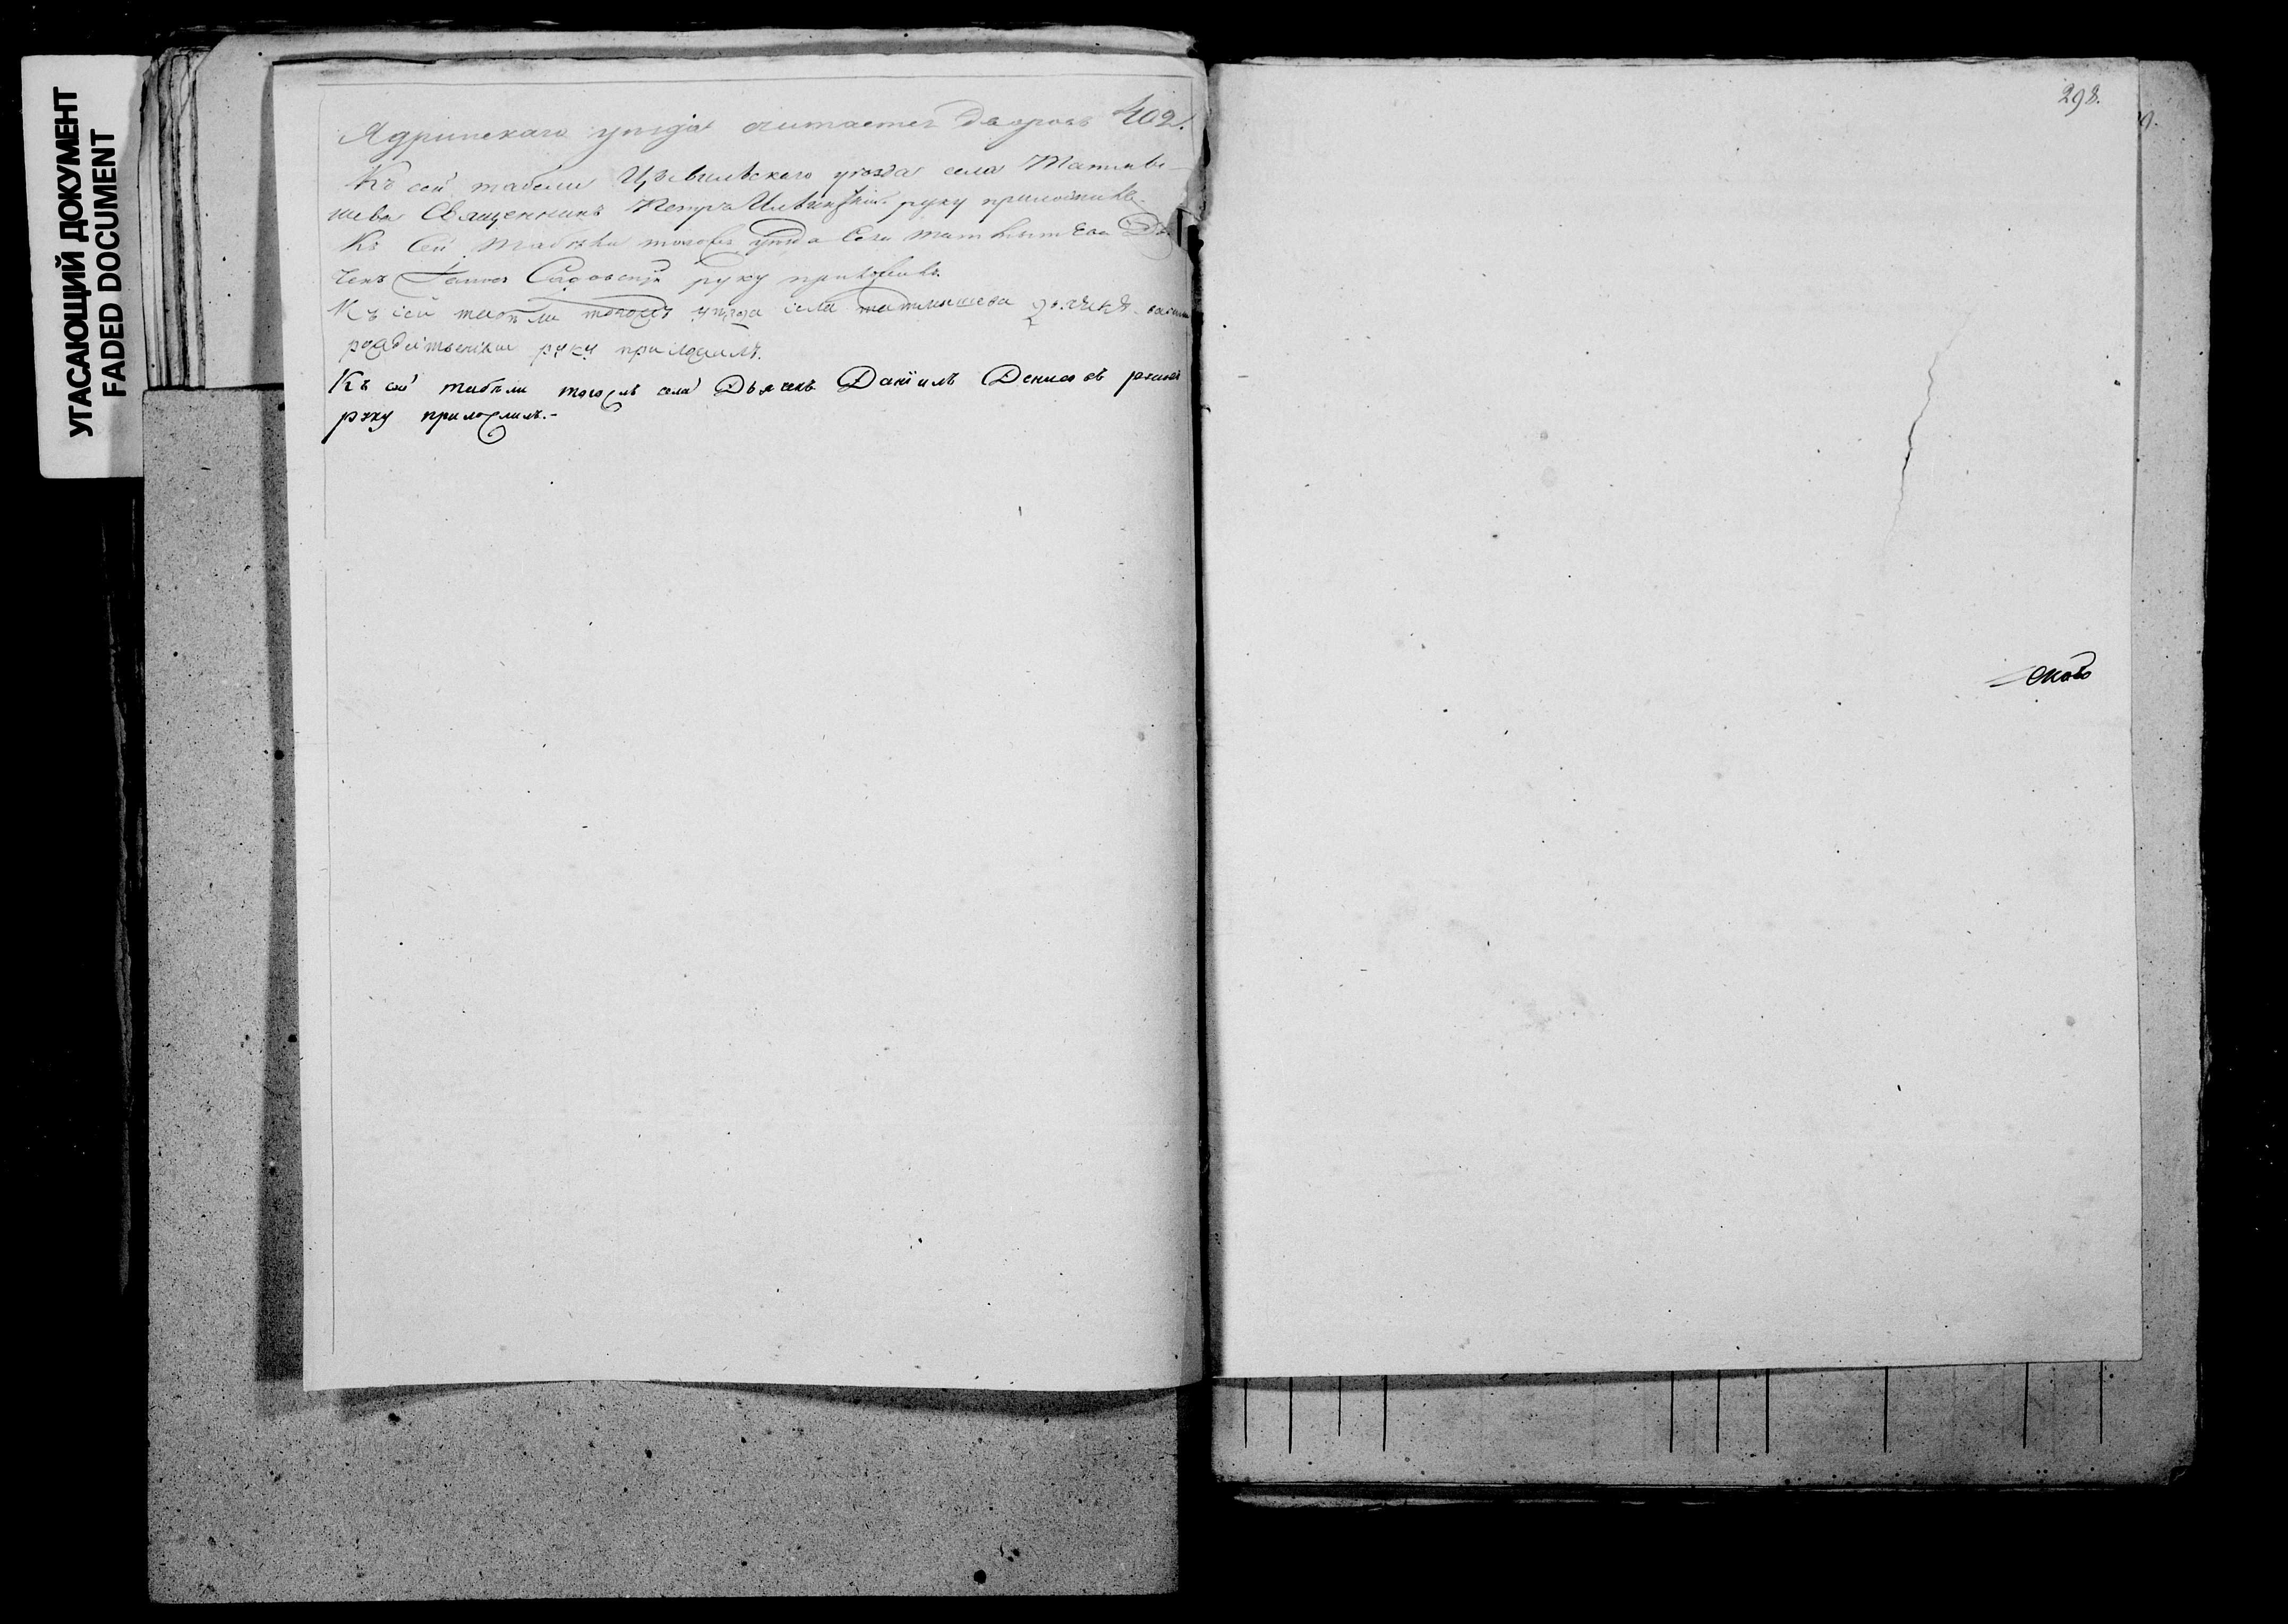 УГАСАЮЩИЙ ДОКУМЕНТ
FADED DOCUMENT
Ядринскаго уѣзда считается дворовъ 402.
Къ сей табели Цывильскаго уѣзда села Татмы-
шева Священникъ Петръ руку приложилъ.
Къ сей табели тогожъ уѣзда села татмышева Дья
чекъ Садовскій руку приложилъ.
Къ сей табели тогожъ уѣзда села татмышева
руку приложилъ.
Къ сей табели тогожъ села Дьячекъ Данiилъ Денисовъ
руку приложилъ.-
298.